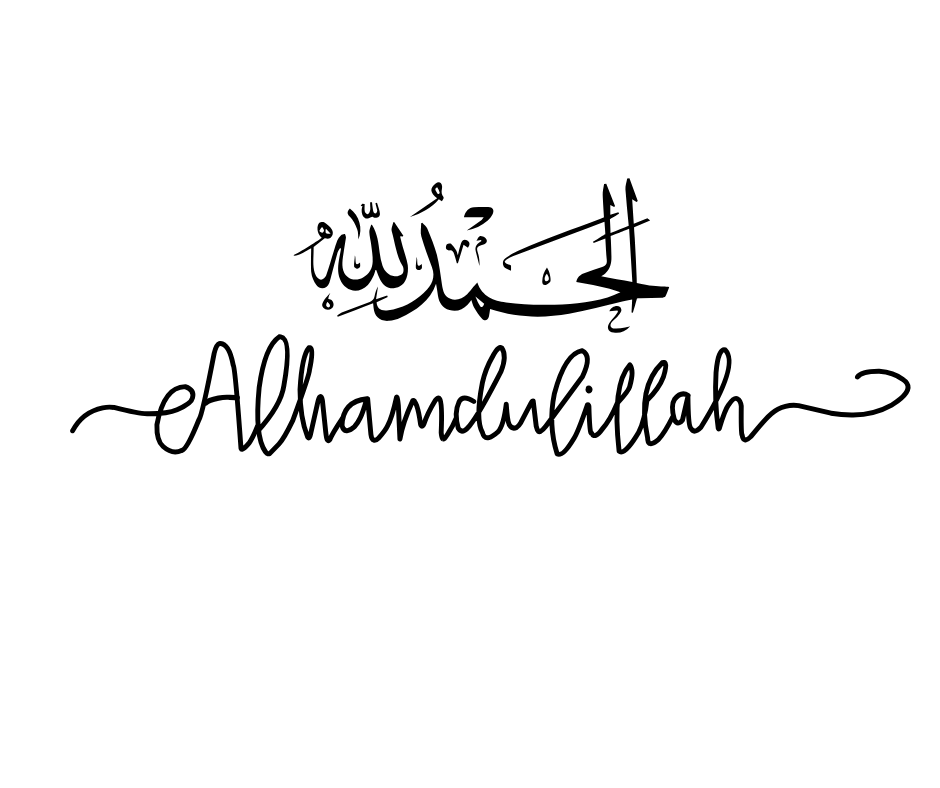 الحمدُ للّٰهِ
Alhamdulillah